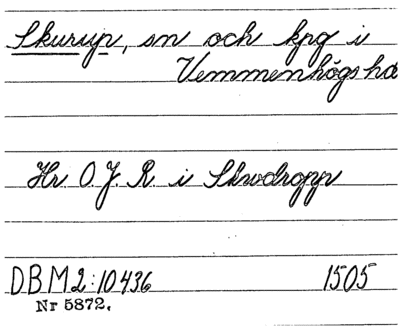 Skurup, sn och kpg i
Vemmenhögs hd
Hr. O. J. R. i Skrodropp
DBM 2:10436 1505
Nr 5872.